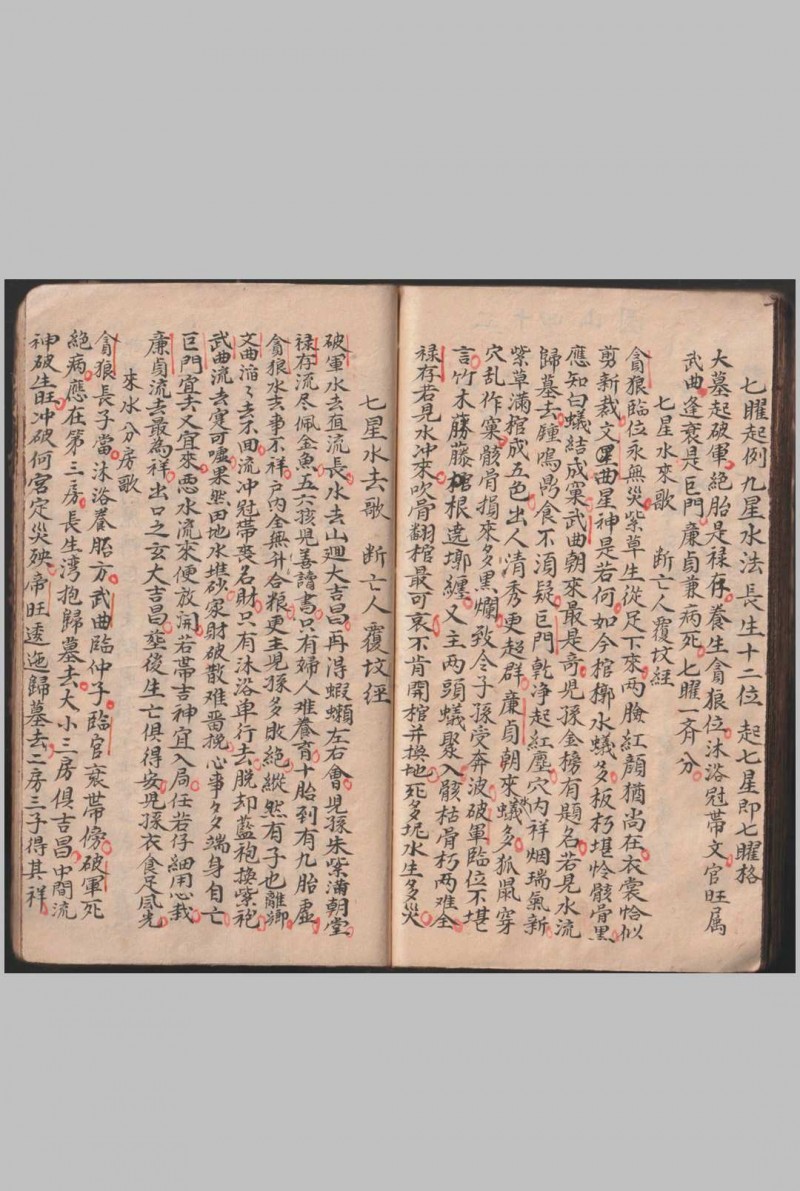 七曜起例九星水法長生十二位　起七星即七曜格
大墓起破軍絕胎是祿存養生貪狼位沐浴冠帶文官旺属
武曲逢衰是巨門廉貞兼病死七曜一斉分
七星水來歌　断亡人覆坟經
貪狼臨位永無災紫草生從足下來両臉紅顔猶尚在衣裳恰似
剪新裁文曲星神是若何如今棺槨水蟻多板朽堪怜骸骨黒
應知白蟻結成窠武曲朝來最是奇児孫金榜有題名若見水流
歸墓去鍾鳴鼎食不湏疑巨門乾净起紅塵穴内祥烟瑞氣新
紫草滿棺成五色出人清秀更超群廉貞朝來蟻多狐鼠穿
穴乱作窠骸骨損來多黒爛致令子孫受奔波破軍臨位不堪
言竹木藤藤棺根遶墎纏又主两頭蟻聚入骸枯骨朽两难全
禄存若見水冲來吹骨翻棺最可哀不肯開棺并換地死多坭水生多災
七星水去歌　断亡人覆坟經
破軍水去直流長水去山廻大吉昌再得蝦蠏左右會児孫朱紫滿朝堂
禄存流尽佩金魚五六孩児善讀書只有婦人难養育十胎到有九胎虚
貪狼水去事不祥户内全無升合粮更主児孫多敗絶縦然有子也離鄉
文曲滔々去不囬流冲冠帶喪名財只有沐浴单行去脱却藍袍換紫袍
武曲流去寔可嘘果然田地水堆砂家財破散难畱挽心事多端身自亡
巨門宜去又宜來悪水流來便放開若帶吉神宜入局任若仔細用心栽
廉貞流去最為祥出口之玄大吉昌塟後生亡俱得安児孫衣食足風光
來水分房歌
貪狼長子當沐浴養胎方武曲臨仲子臨官衰帶傍破軍死
絕病應在第三房長生湾抱歸墓去大小三房俱吉昌中間流
神破生旺冲破何宮定災殃帝旺逶迤歸墓去二房三子得其祥